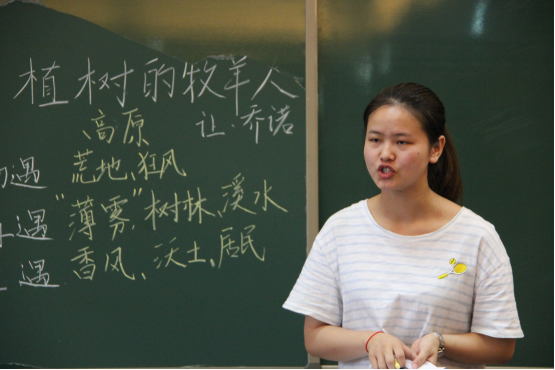 植树的牧羊人
让·乔诺
高原
遇 荒地、狂风
遇 "薄雾"、树林、溪水
遇 香风、沃土、居民